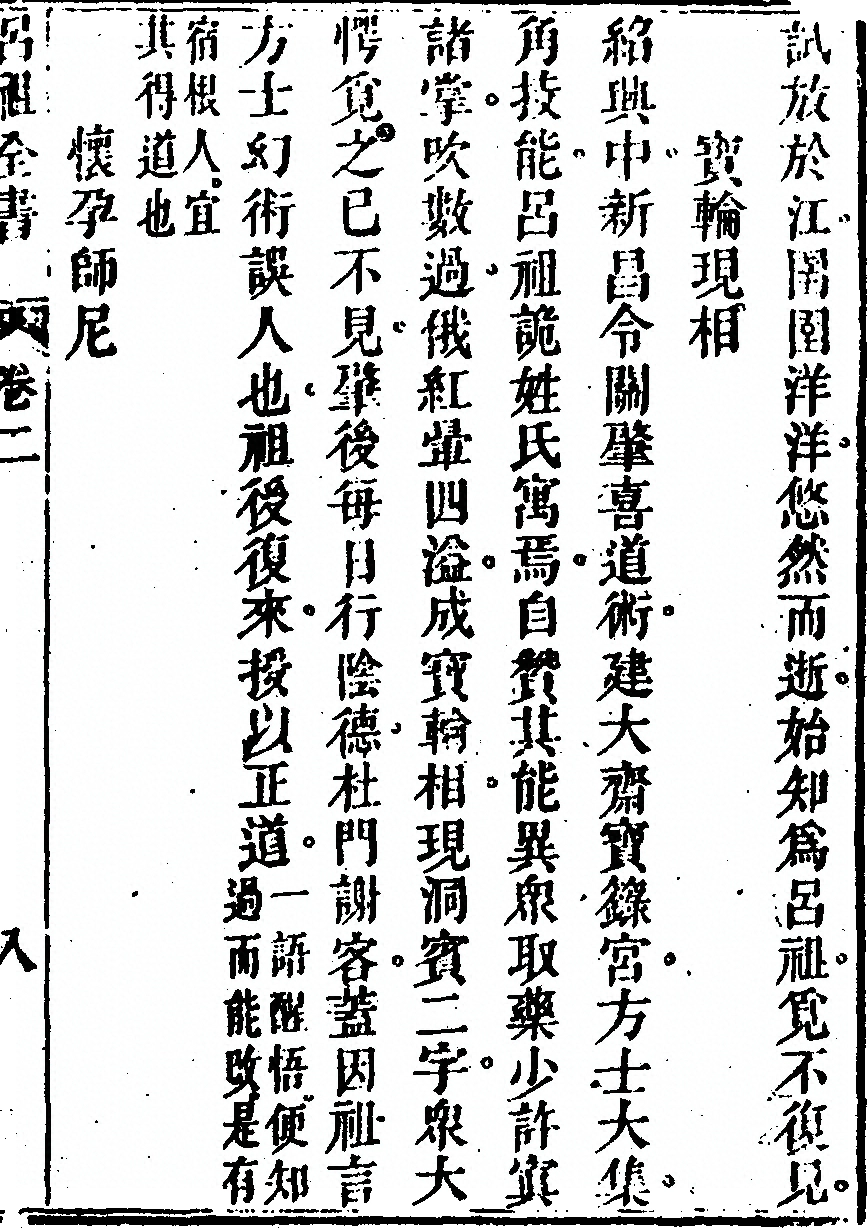 試放於江圉圉洋洋悠然而逝始知爲呂祖覓不復見
寶輪現相
紹興中新昌令關肇喜道術建大齋寶籙宮方士大集
角技能呂祖詭姓氏寓焉自贊其能異衆取藥少許寘
諸掌吹數過俄紅暈四溢成寶輪相現洞賓二字衆大
愕覓之已不見肇後每日行陰德杜門謝客蓋因祖言
方士幻術誤人也祖後復來授以正道一語醒悟便知
過而能改是有
宿根人宜
其得道也
懷孕師尼
呂祖全書 卷二 八